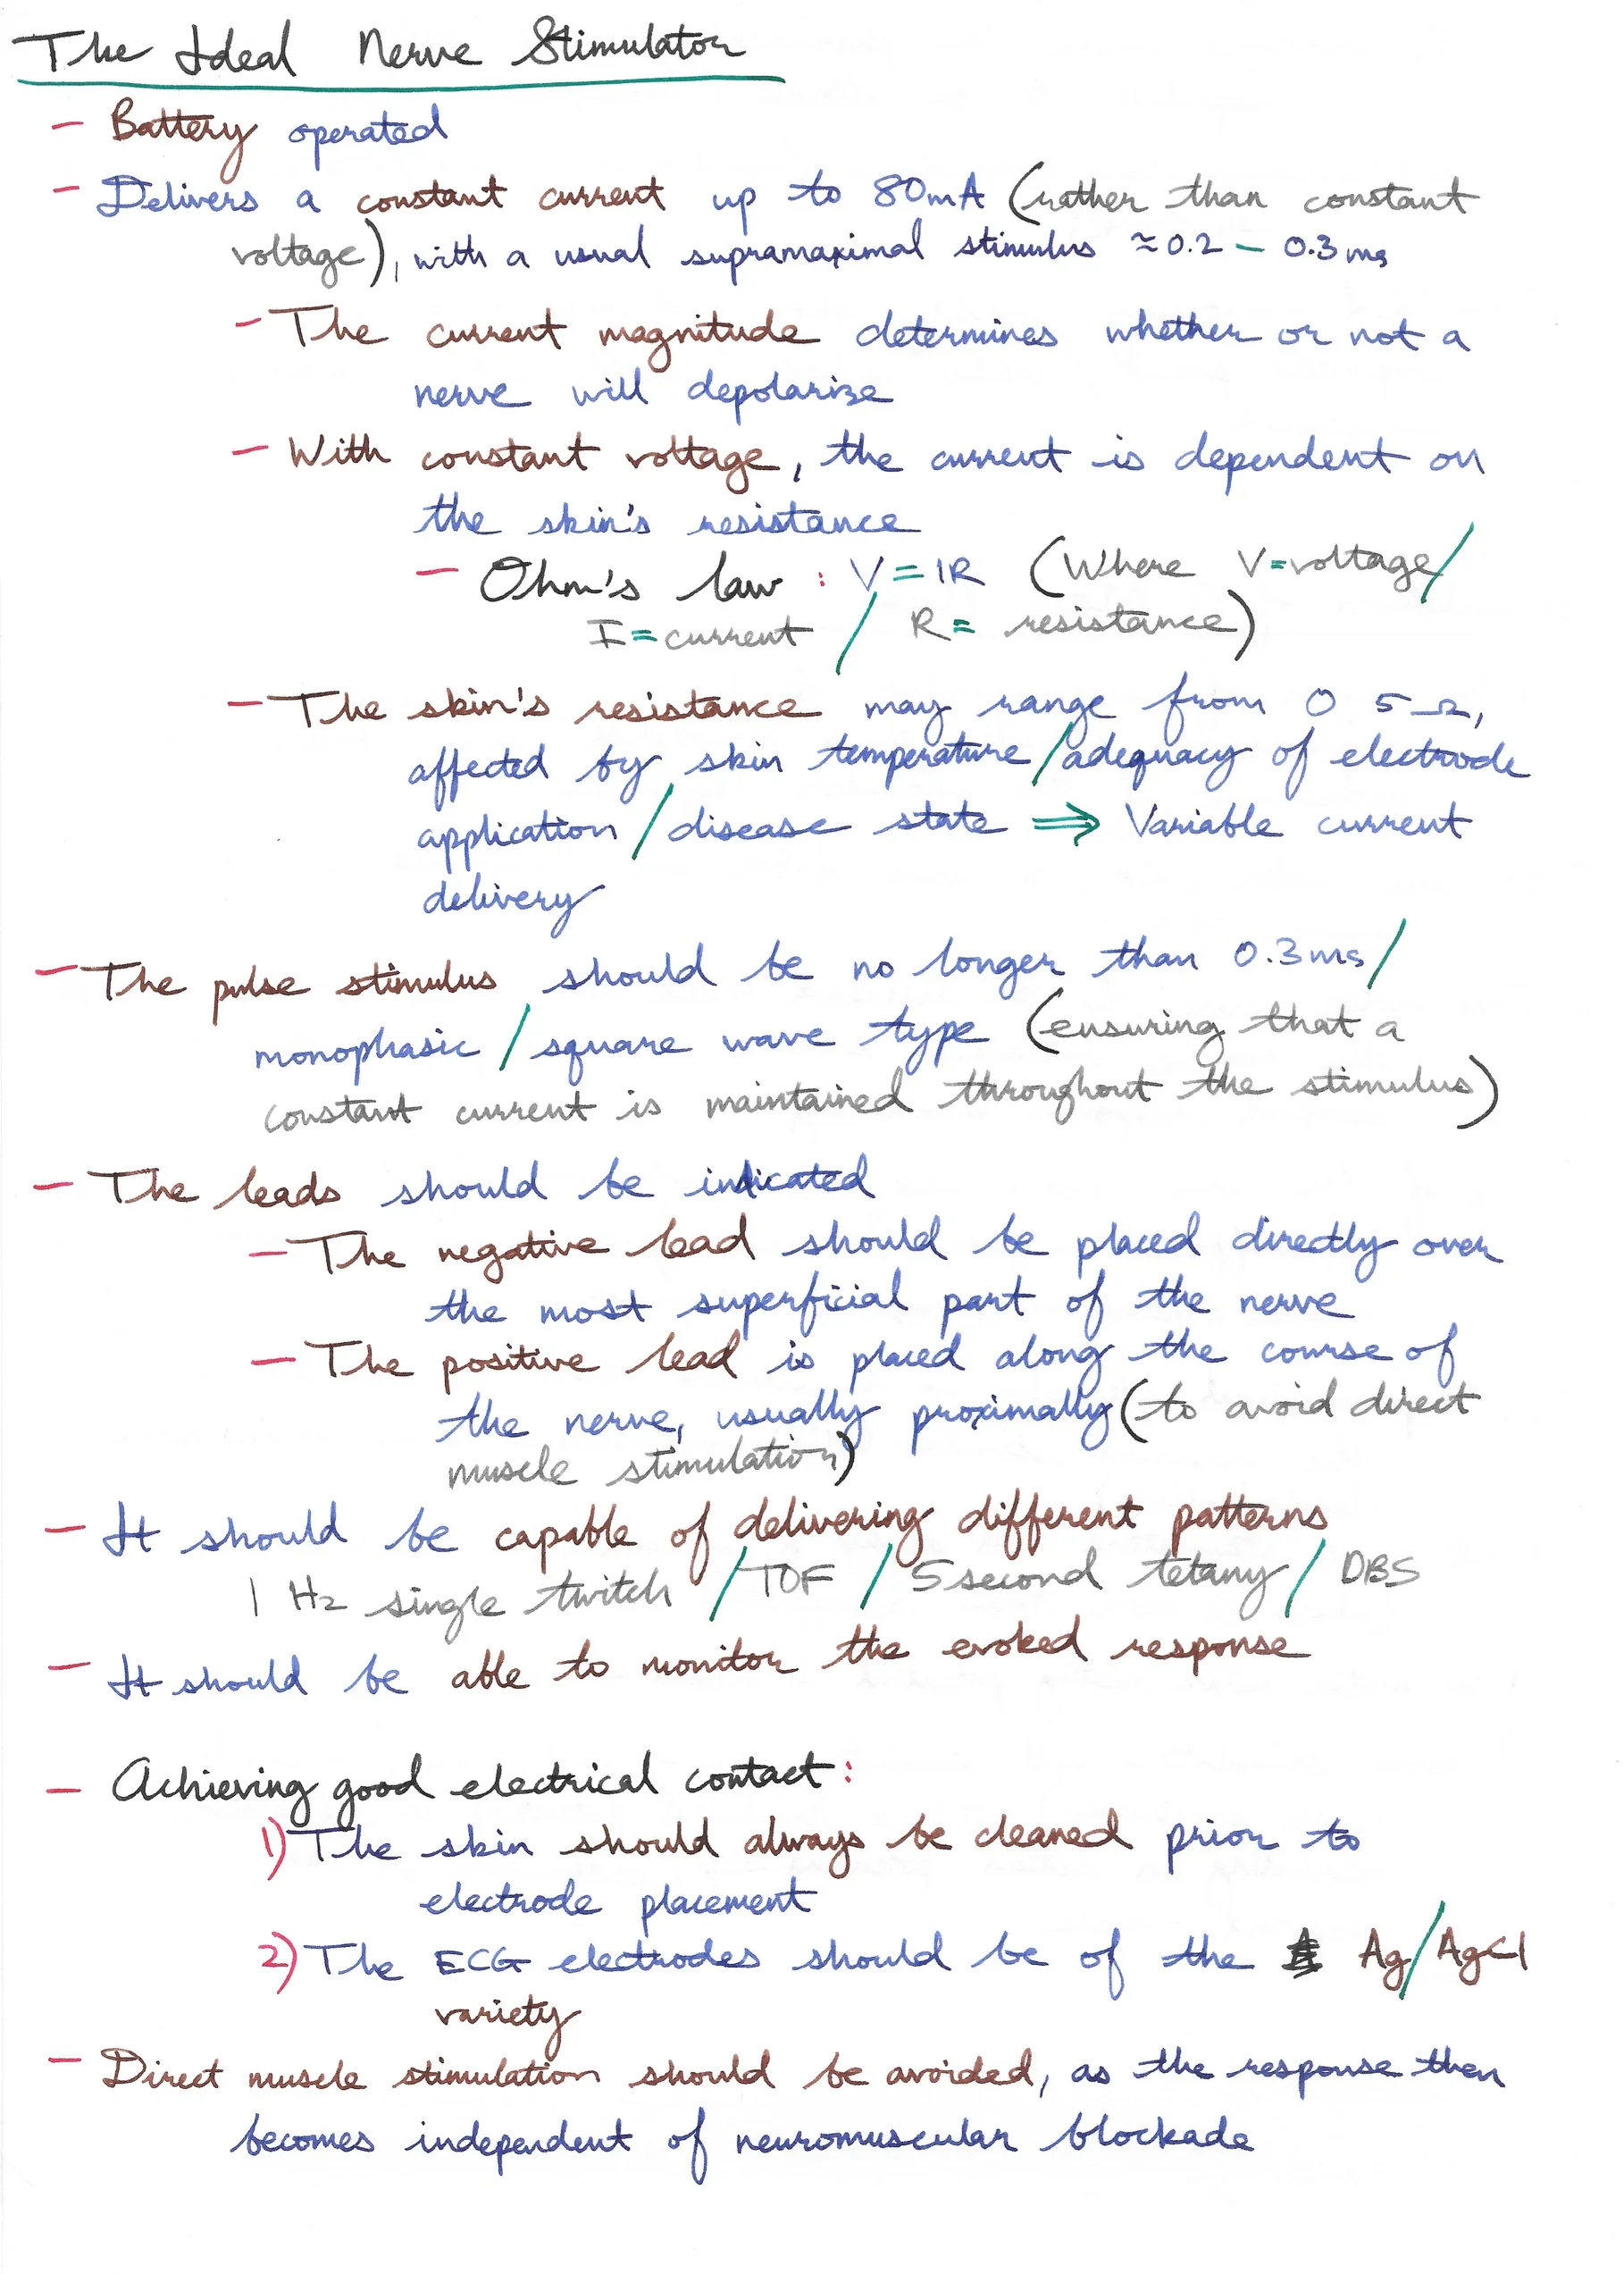 The Ideal Nerve Stimulator
- Battery operated
- Delivers a constant current up to 80mA (rather than constant
voltage), with a usual supramaximal stimulus ≈ 0.2 - 0.3ms
- The current magnitude determines whether or not a
nerve will depolarise
- With constant voltage, the current is dependent on
the skin's resistance
- Ohm's law : V = IR (Where V=voltage/
I = current / R = resistance)
- The skin's resistance may range from 0 5 Ω,
affected by skin temperature/adequacy of electrode
application/disease state ⇒ Variable current
delivery
- The pulse stimulus should be no longer than 0.3ms/
monophasic/square wave type (ensuring that a
constant current is maintained throughout the stimulus)
- The leads should be indicated
- The negative lead should be placed directly over
the most superficial part of the nerve
- The positive lead is placed along the course of
the nerve, usually proximally (to avoid direct
muscle stimulation)
- It should be capable of delivering different patterns
1 Hz single twitch / TOF / 5 second tetany / DBS
- It should be able to monitor the evoked response
- Achieving good electrical contact:
1) The skin should always be cleaned prior to
electrode placement
2) The ECG electrodes should be of the Ag/AgCl
variety
- Direct muscle stimulation should be avoided, as the response then
becomes independent of neuromuscular blockade